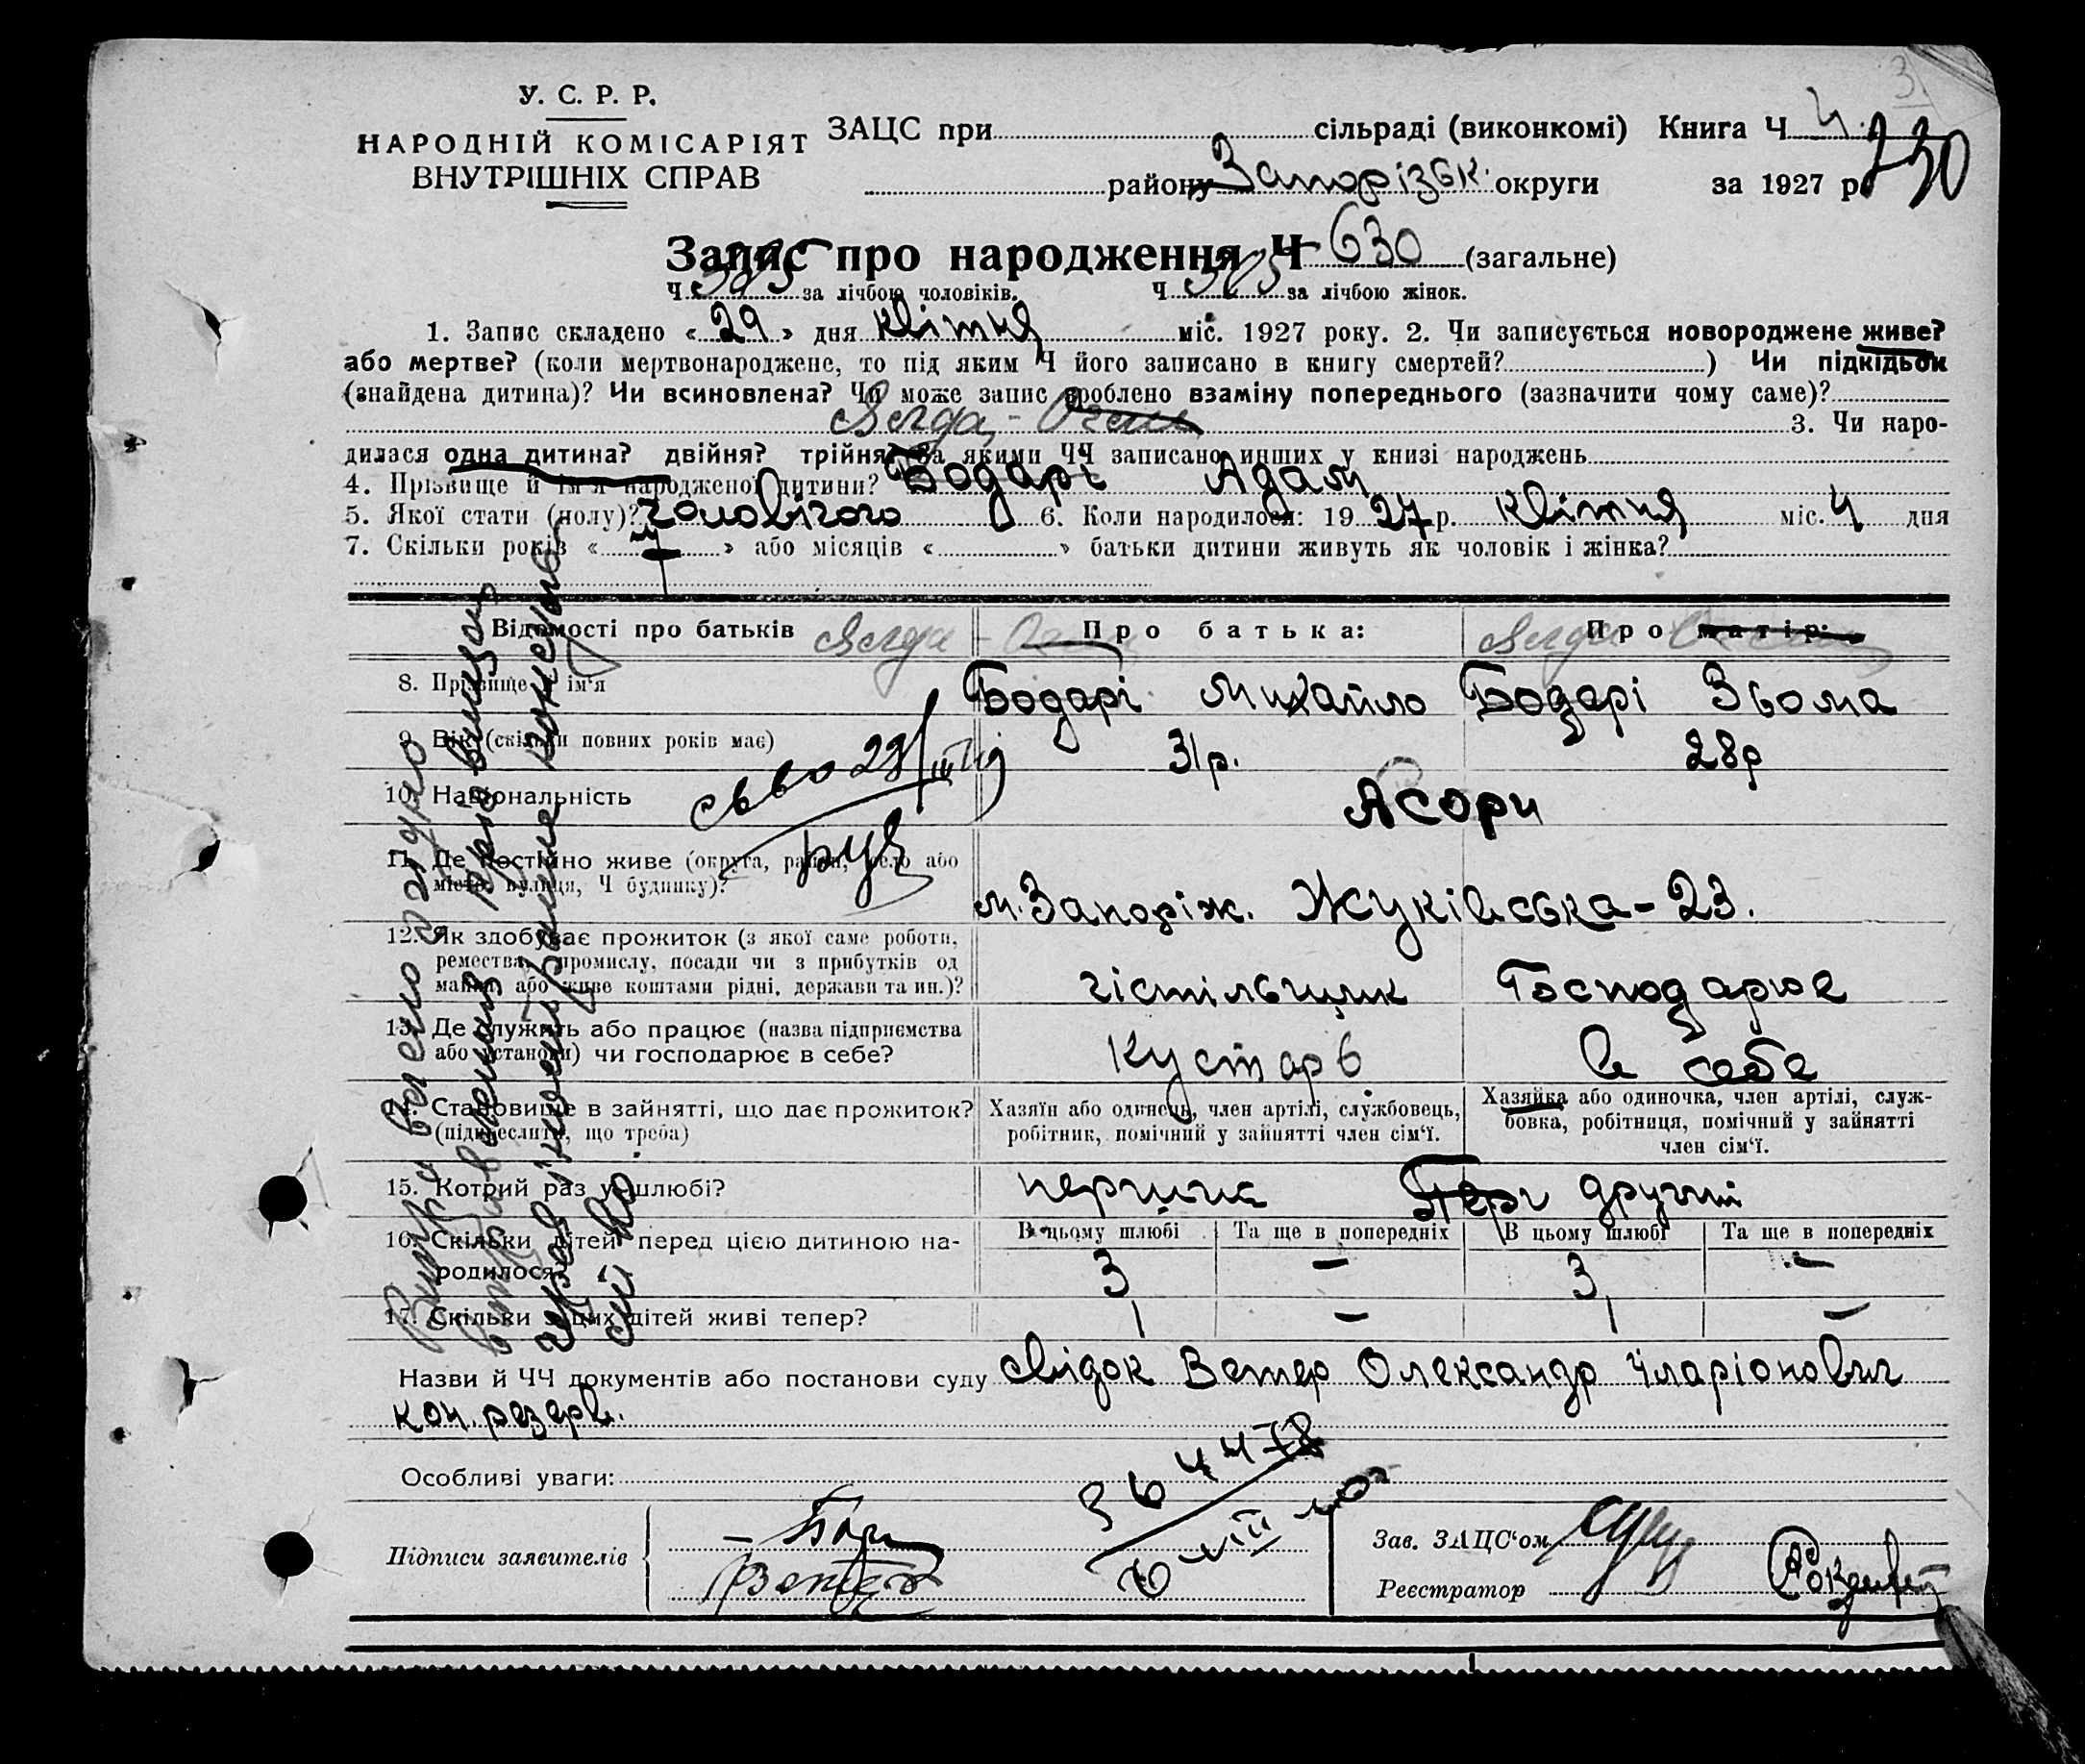 У. С. Р. Р.
НАРОДНІЙ КОМІСАРІЯТ
ВНУТРІШНІХ СПРАВ
ЗАЦС при сільраді (виконкомі) Книга Ч 4.
району Запорізьк. округи за 1927 р. 230
Запис про народження Ч 630 (загальне)
Ч за лічбою чоловіків. Ч за лічбою жінок.
1. Запис складено « 29 » дня квітня міс. 1927 року. 2. Чи записується новороджене живе?
або мертве? (коли мертвонароджене, то під яким Ч його записано в книгу смертей? ) Чи підкідьок
(знайдена дитина)? Чи всиновлена? Чи може запис зроблено взаміну попереднього (зазначити чому саме)?
3. Чи наро-
дилася одна дитина? двійня? трійня? За якими ЧЧ записано инших у книзі народжень
4. Прізвище й ім'я народженої дитини? Бодарі Адам
5. Якої стати (полу)? чоловічого 6. Коли народилося: 19 27 р. квітня міс. 4 дня
7. Скільки років « » або місяців « » батьки дитини живуть як чоловік і жінка?
Відомості про батьків Про батька: Про матір:
8. Прізвище й ім'я Бодарі Михайло Бодарі Зьома
9. Вік (скільки повних років має) 31р. 28р
10. Національність Асори
11. Де постійно живе (округа, район, село або
місто, вулиця, Ч будинку)? м. Запоріж. Жуківська-23.
12. Як здобуває прожиток (з якої саме роботи,
ремества, промислу, посади чи з прибутків од
майна, або живе коштами рідні, держави та ин.)? чістільщик Господарює
13. Де служить або працює (назва підприємства
або установи) чи господарює в себе? Кустарь в себе
14. Становище в зайнятті, що дає прожиток?
(підкреслити, що треба)
Хазяїн або одинець, член артілі, службовець,
робітник, помічний у зайнятті член сім'ї.
Хазяйка або одиночка, член артілі, служ-
бовка, робітниця, помічний у зайнятті
член сім'ї.
15. Котрий раз у шлюбі? перший другий
16. Скільки дітей перед цією дитиною на-
родилося?
В цьому шлюбі Та ще в попередніх В цьому шлюбі Та ще в попередніх
3 — 3 —
17. Скільки з цих дітей живі тепер? 1 — 1 —
Назви й ЧЧ документів або постанови суду свідок Ветер Олександр Іларіонович
кон. резерв.
Особливі уваги:
Підписи заявителів
Зав. ЗАЦС'ом
Реєстратор